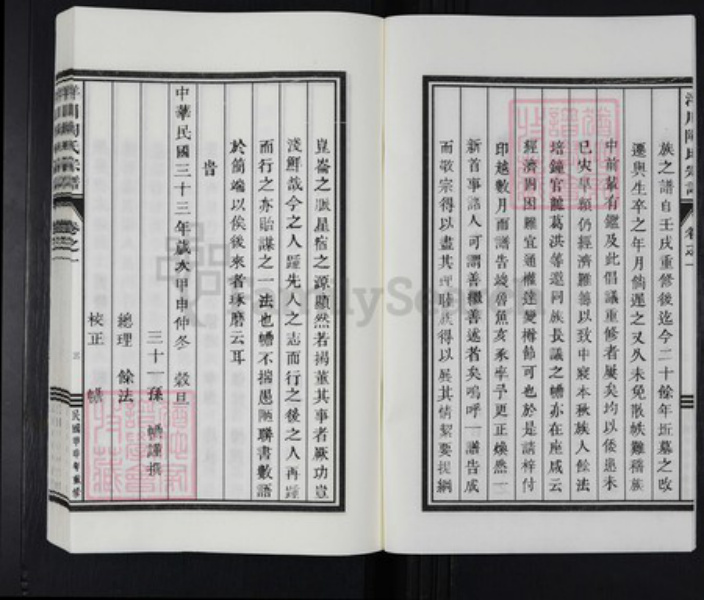 族之譜自壬戌重修後迄今二十餘年坵墓之改
遷與生卒之年月倘遲之又久未免散帙難稽族
中前輩有鑑及此倡議重修者屢矣均以倭患未
已灾旱頻仍經濟難籌以致中寢本秋族人餘法
培鐘官龍葛洪等邀同族長議之蟾亦在座咸云
經濟固困難宜通權達變樽節可也於是請梓付
印越數月而譜告竣魯魚亥豕率予更正煥然一
新首事諸人可謂善繼善述者矣嗚呼一譜告成
而敬宗得以盡其理睦族得以展其情絜要提綱
崑崙之脈星宿之源顯然若揭董其事者厥功豈
淺鮮哉今之人踵先人之志而行之後之人再踵
而行之亦貽謀之一法也蟾不揣愚陋聯書數語
於簡端以俟後來者琢磨云耳
旹
中華民國三十三年歲次甲申仲冬 穀旦
三十一孫 蟾謹撰
總理 餘法
校正 蟾
卷之一
三
民國甲申年